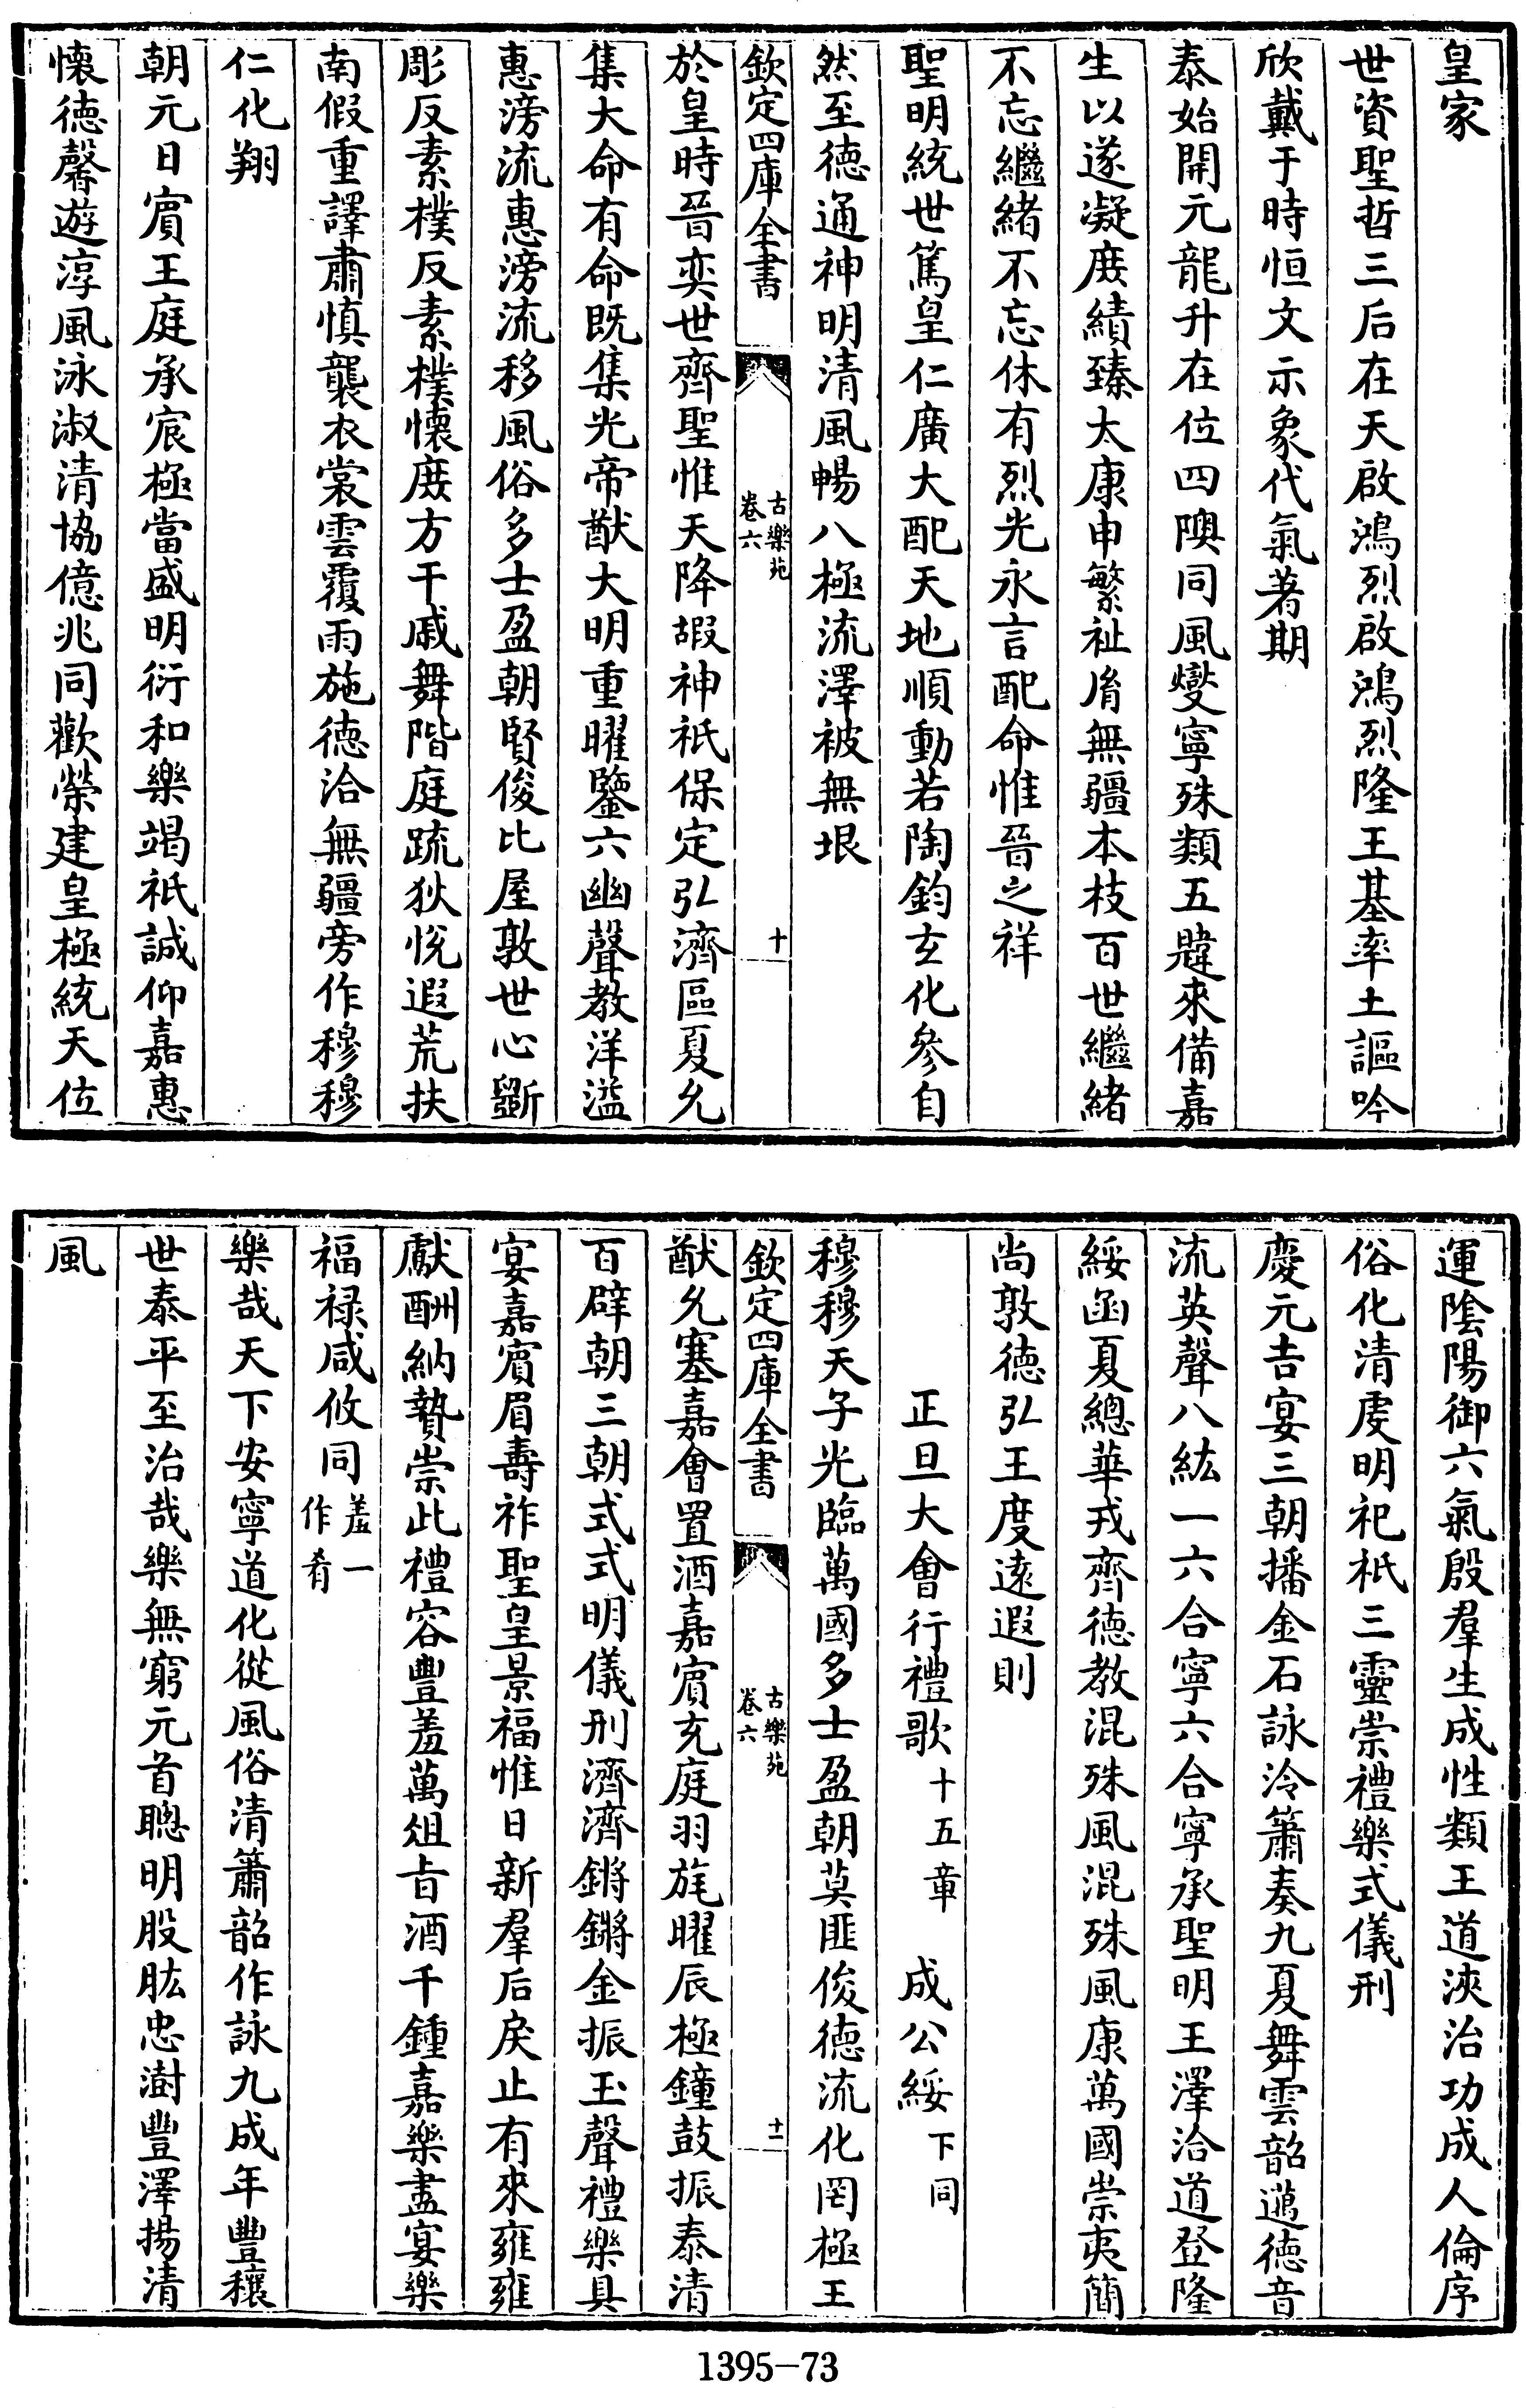 皇家
世資聖哲三后在天啟鴻烈啟鴻烈隆王基率土謳吟
欣戴于時恒文示象代氣著期
泰始開元龍升在位四隩同風燮寧殊類五韙來備嘉
生以遂凝庶績臻太康申繁祉胤無疆本枝百世繼緒
不忘繼緒不忘休有烈光永言配命惟晉之祥
聖明統世篤皇仁廣大配天地順動若陶鈞玄化參自
然至德通神明清風暢八極流澤被無垠
欽定四庫全書
古樂苑
卷六
十
於皇時晉奕世齊聖惟天降嘏神祇保定弘濟區夏允
集大命有命既集光帝猷大明重曜鑒六幽聲教洋溢
惠滂流惠滂流移風俗多士盈朝賢俊比屋敦世心斵
彫反素樸反素樸懷庶方干戚舞階庭疏狄悅遐荒扶
南假重譯肅慎襲衣裳雲覆雨施德洽無疆旁作穆穆
仁化翔
朝元日賓王庭承宸極當盛明衍和樂竭祇誠仰嘉惠
懷德馨遊淳風泳淑清協億兆同歡榮建皇極統天位
運隂陽御六氣殷羣生成性類王道浹治功成人倫序
俗化清虔明祀祇三靈崇禮樂式儀刑
慶元吉宴三朝播金石詠泠簫奏九夏舞雲韶邁德音
流英聲八紘一六合寧六合寧承聖明王澤洽道登隆
綏函夏總華戎齊德教混殊風混殊風康萬國崇夷簡
尚敦德弘王度遠遐則
正旦大會行禮歌十五章 成公綏下同
穆穆天子光臨萬國多士盈朝莫匪俊德流化罔極王
欽定四庫全書
古樂苑
卷六
十一
猷允塞嘉會置酒嘉賓充庭羽旄曜辰極鐘鼓振泰清
百辟朝三朝式式明儀刑濟濟鏘鏘金振玉聲禮樂具
宴嘉賓眉壽祚聖皇景福惟日新羣后戾止有來雍雍
獻酬納贄崇此禮容豐羞萬俎旨酒千鍾嘉樂盡宴樂
福禄咸攸同羞一作肴
樂哉天下安寧道化從風俗清簫韶作詠九成年豐穰
世泰平至治哉樂無窮元首聰明股肱忠澍豐澤揚清
風
1395-73